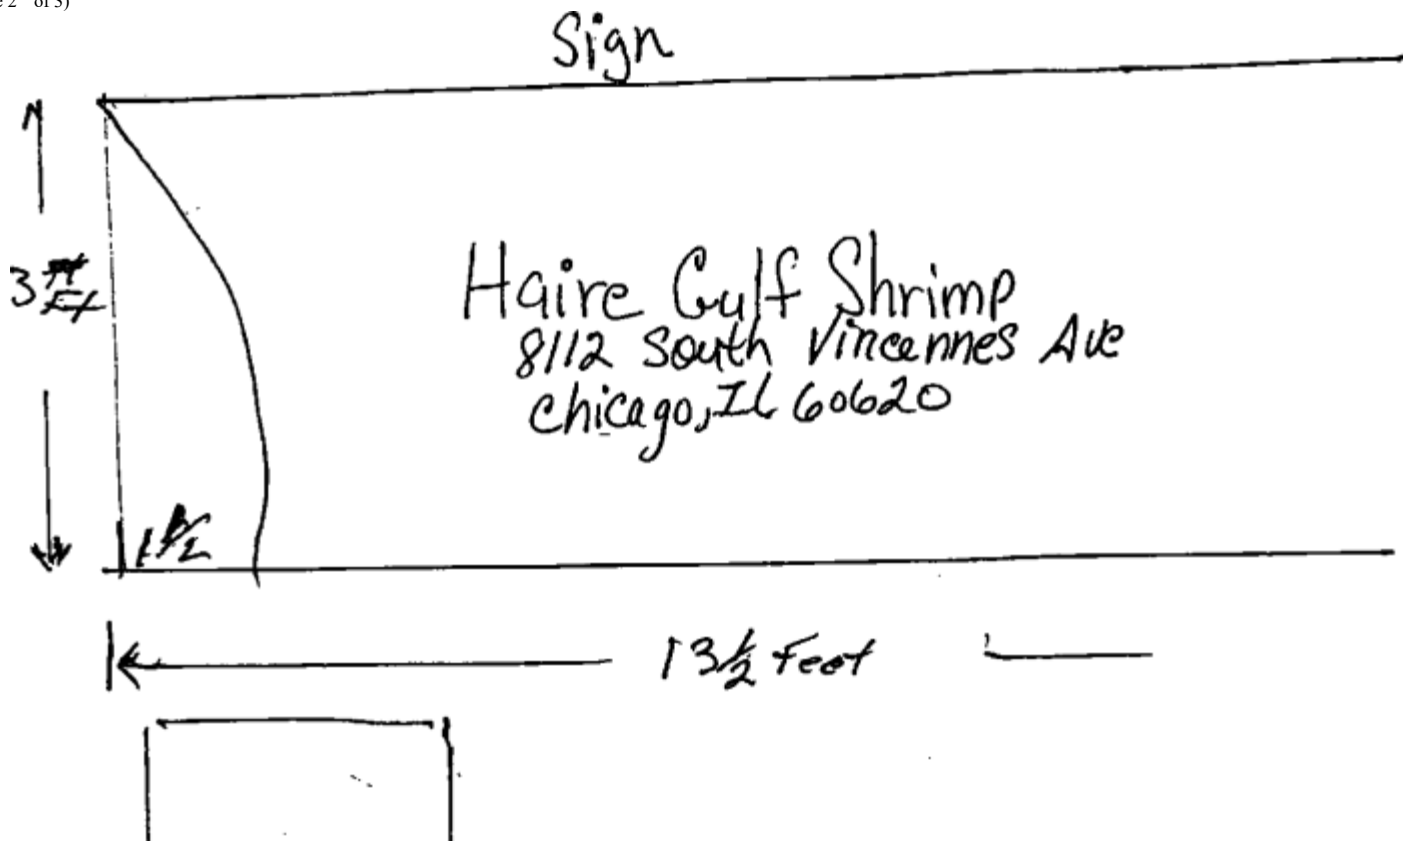 2 of 3)
Sign
3 Ft
Haire Gulf Shrimp
8112 South Vincennes Ave
Chicago, IL 60620
1 1/2
13 1/2 Feet